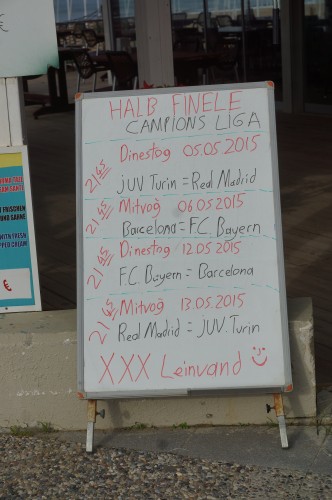 HALB FINELE
CAMPIONS LIGA
Dinestog 05.05.2015
21:45
JUV Turin = Real Madrid
Mitvog 06.05.2015
21:45
Barcelona = F.C. Bayern
Dinestog 12.05.2015
21:45
F.C. Bayern = Barcelona
Mitvog 13.05.2015
21:45
Real Madrid = JUV. Turin
XXX Leinvand
€
€